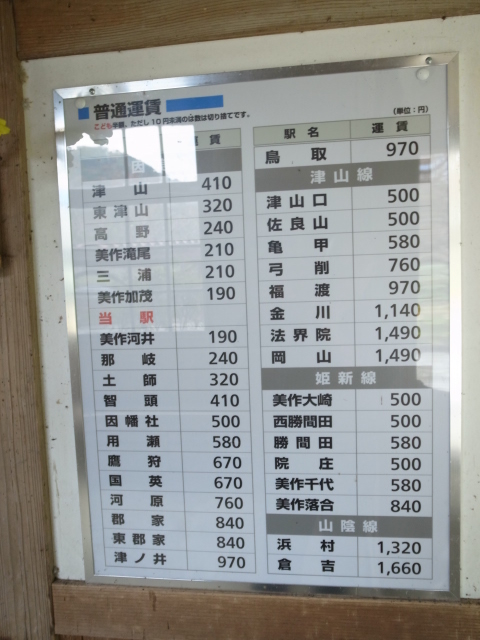 普通運賃
こども半額。ただし10円未満のは数は切り捨てです。
(単位:円)
賃
因
津山 410
東津山 320
高野 240
美作滝尾 210
三浦 210
美作加茂 190
当駅
美作河井 190
那岐 240
土師 320
智頭 410
因幡社 500
用瀬 580
鷹狩 670
国英 670
河原 760
郡家 840
東郡家 840
津ノ井 970
駅名 運賃
鳥取 970
津山線
津山口 500
佐良山 500
亀甲 580
弓削 760
福渡 970
金川 1,140
法界院 1,490
岡山 1,490
姫新線
美作大崎 500
西勝間田 500
勝間田 580
院庄 500
美作千代 580
美作落合 840
山陰線
浜村 1,320
倉吉 1,660